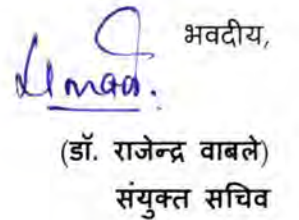 भवदीय,
(डॉ. राजेन्द्र वाबले)
संयुक्त सचिव